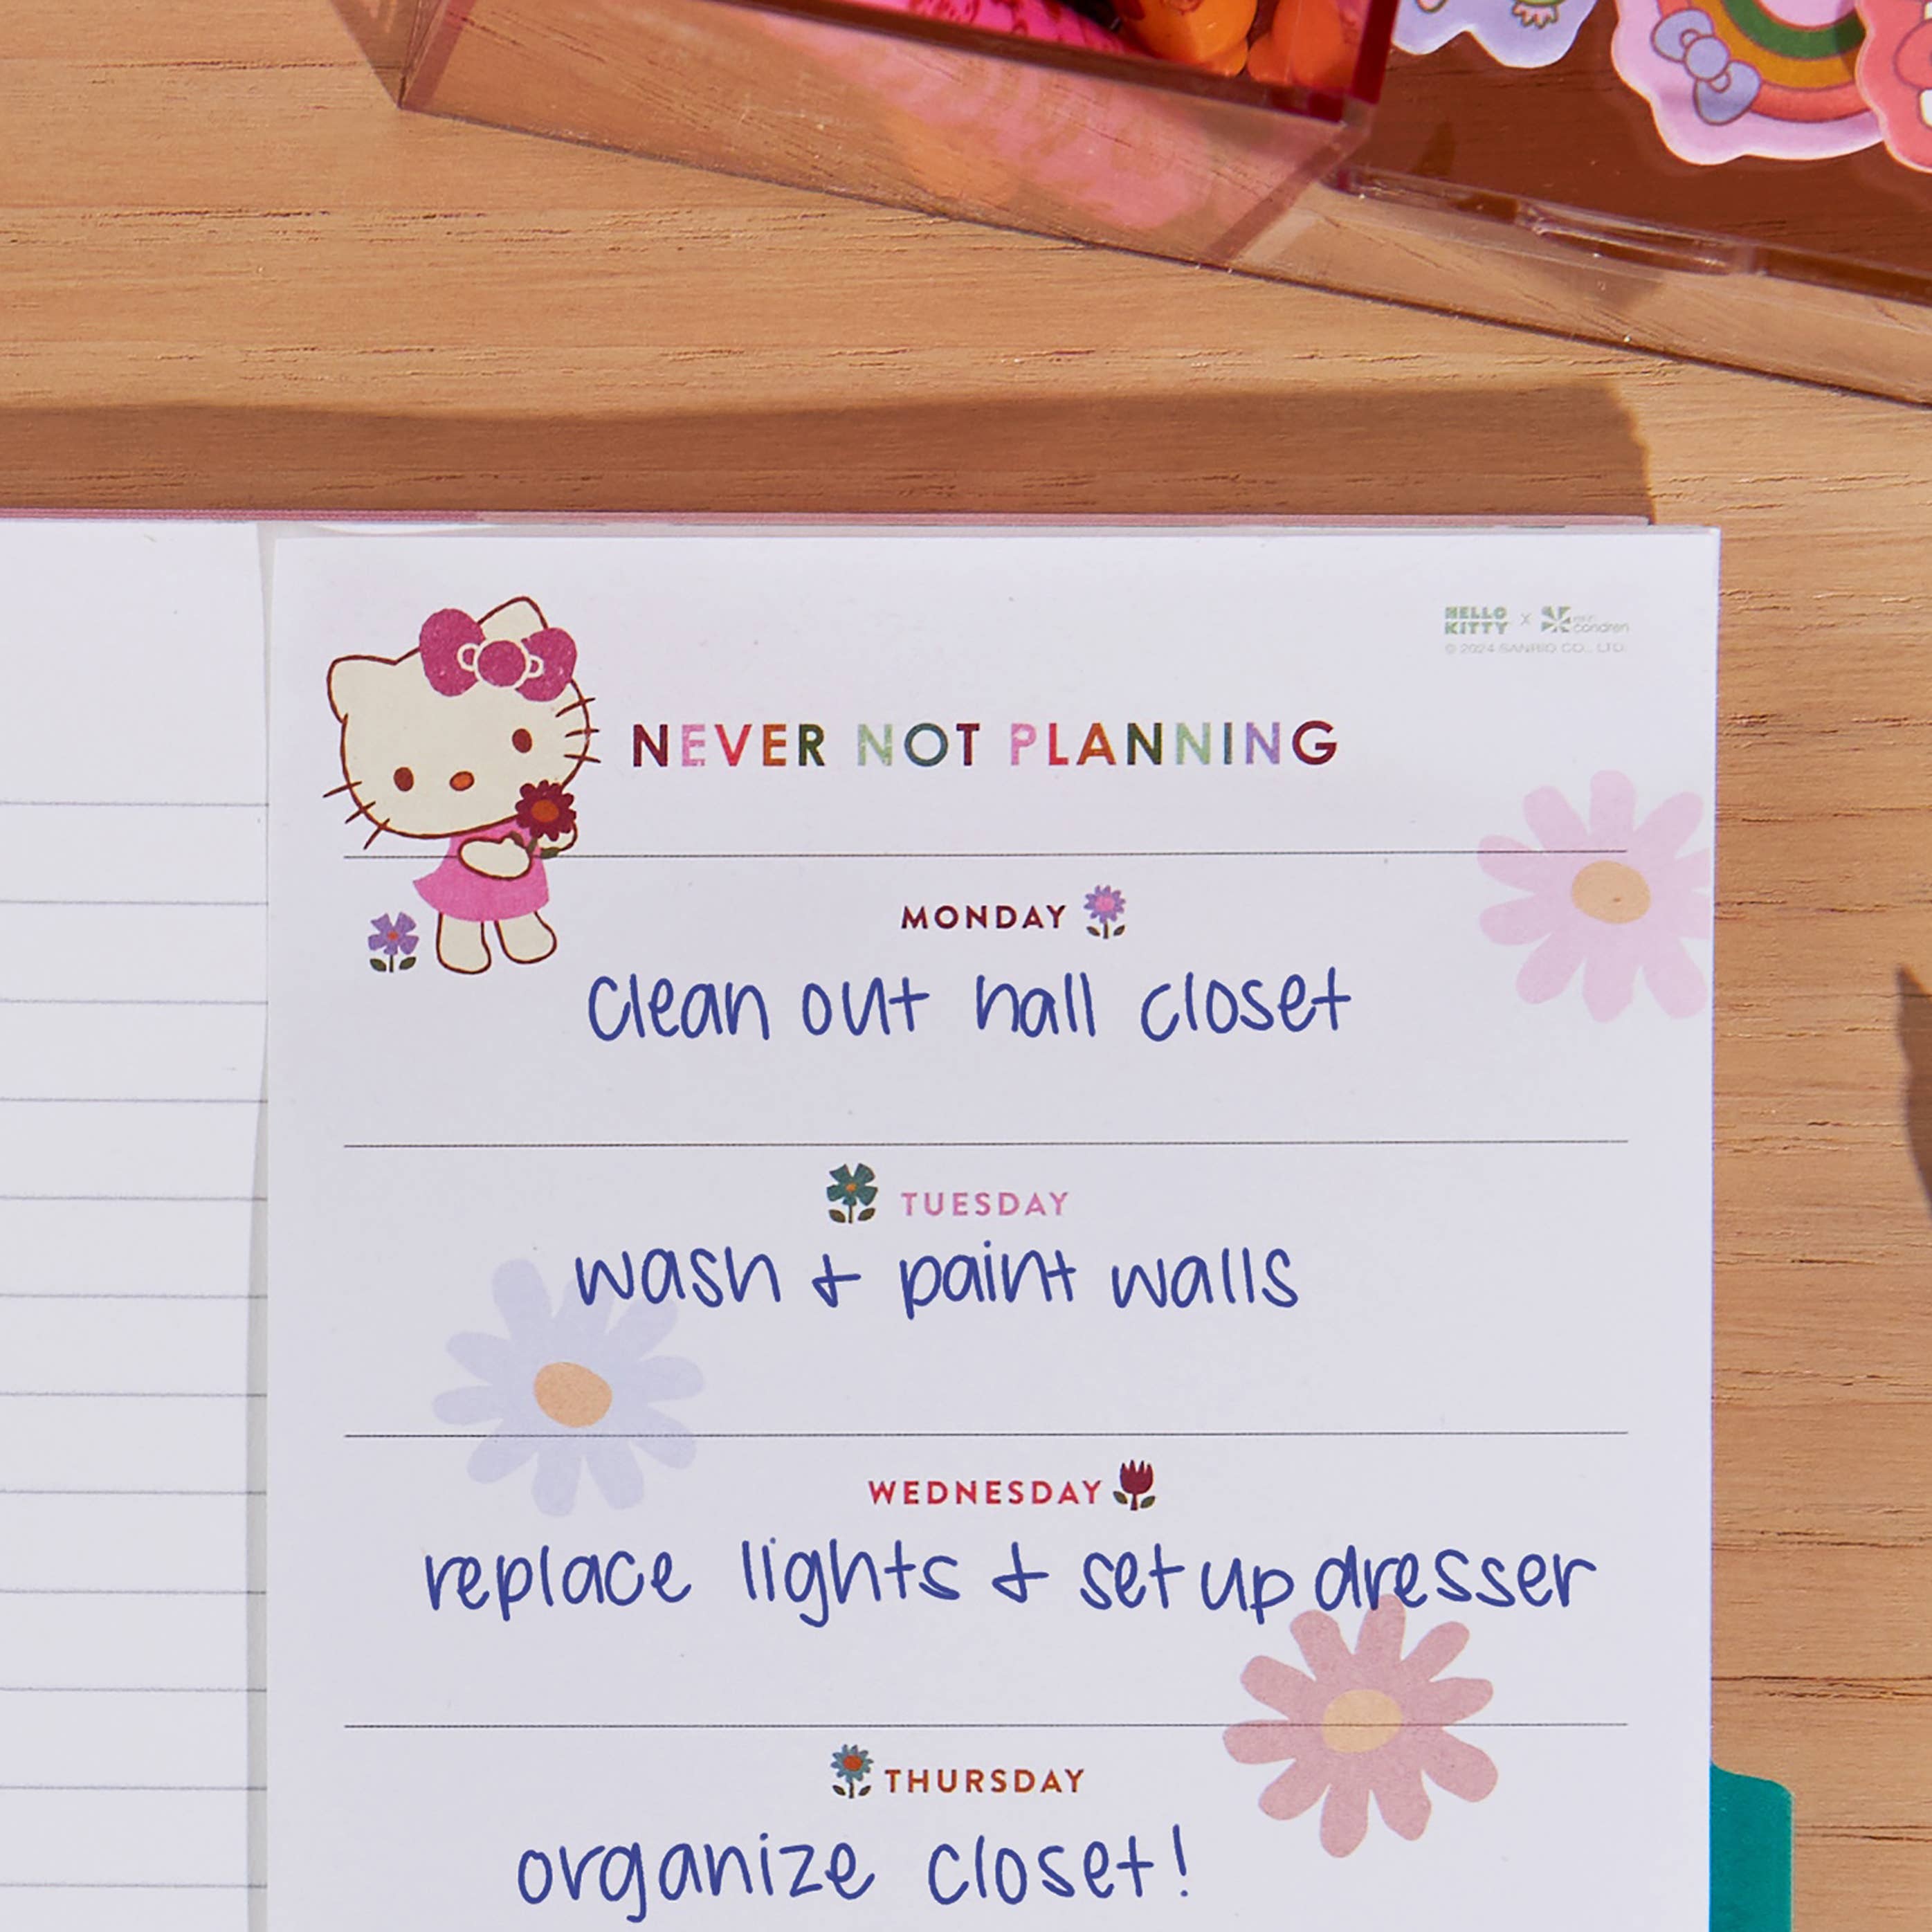 HELLO KITTY x erin condren
© 2024 SANRIO CO., LTD.
NEVER NOT PLANNING
MONDAY
clean out hall closet
TUESDAY
wash + paint walls
WEDNESDAY
replace lights + set up dresser
THURSDAY
organize closet!